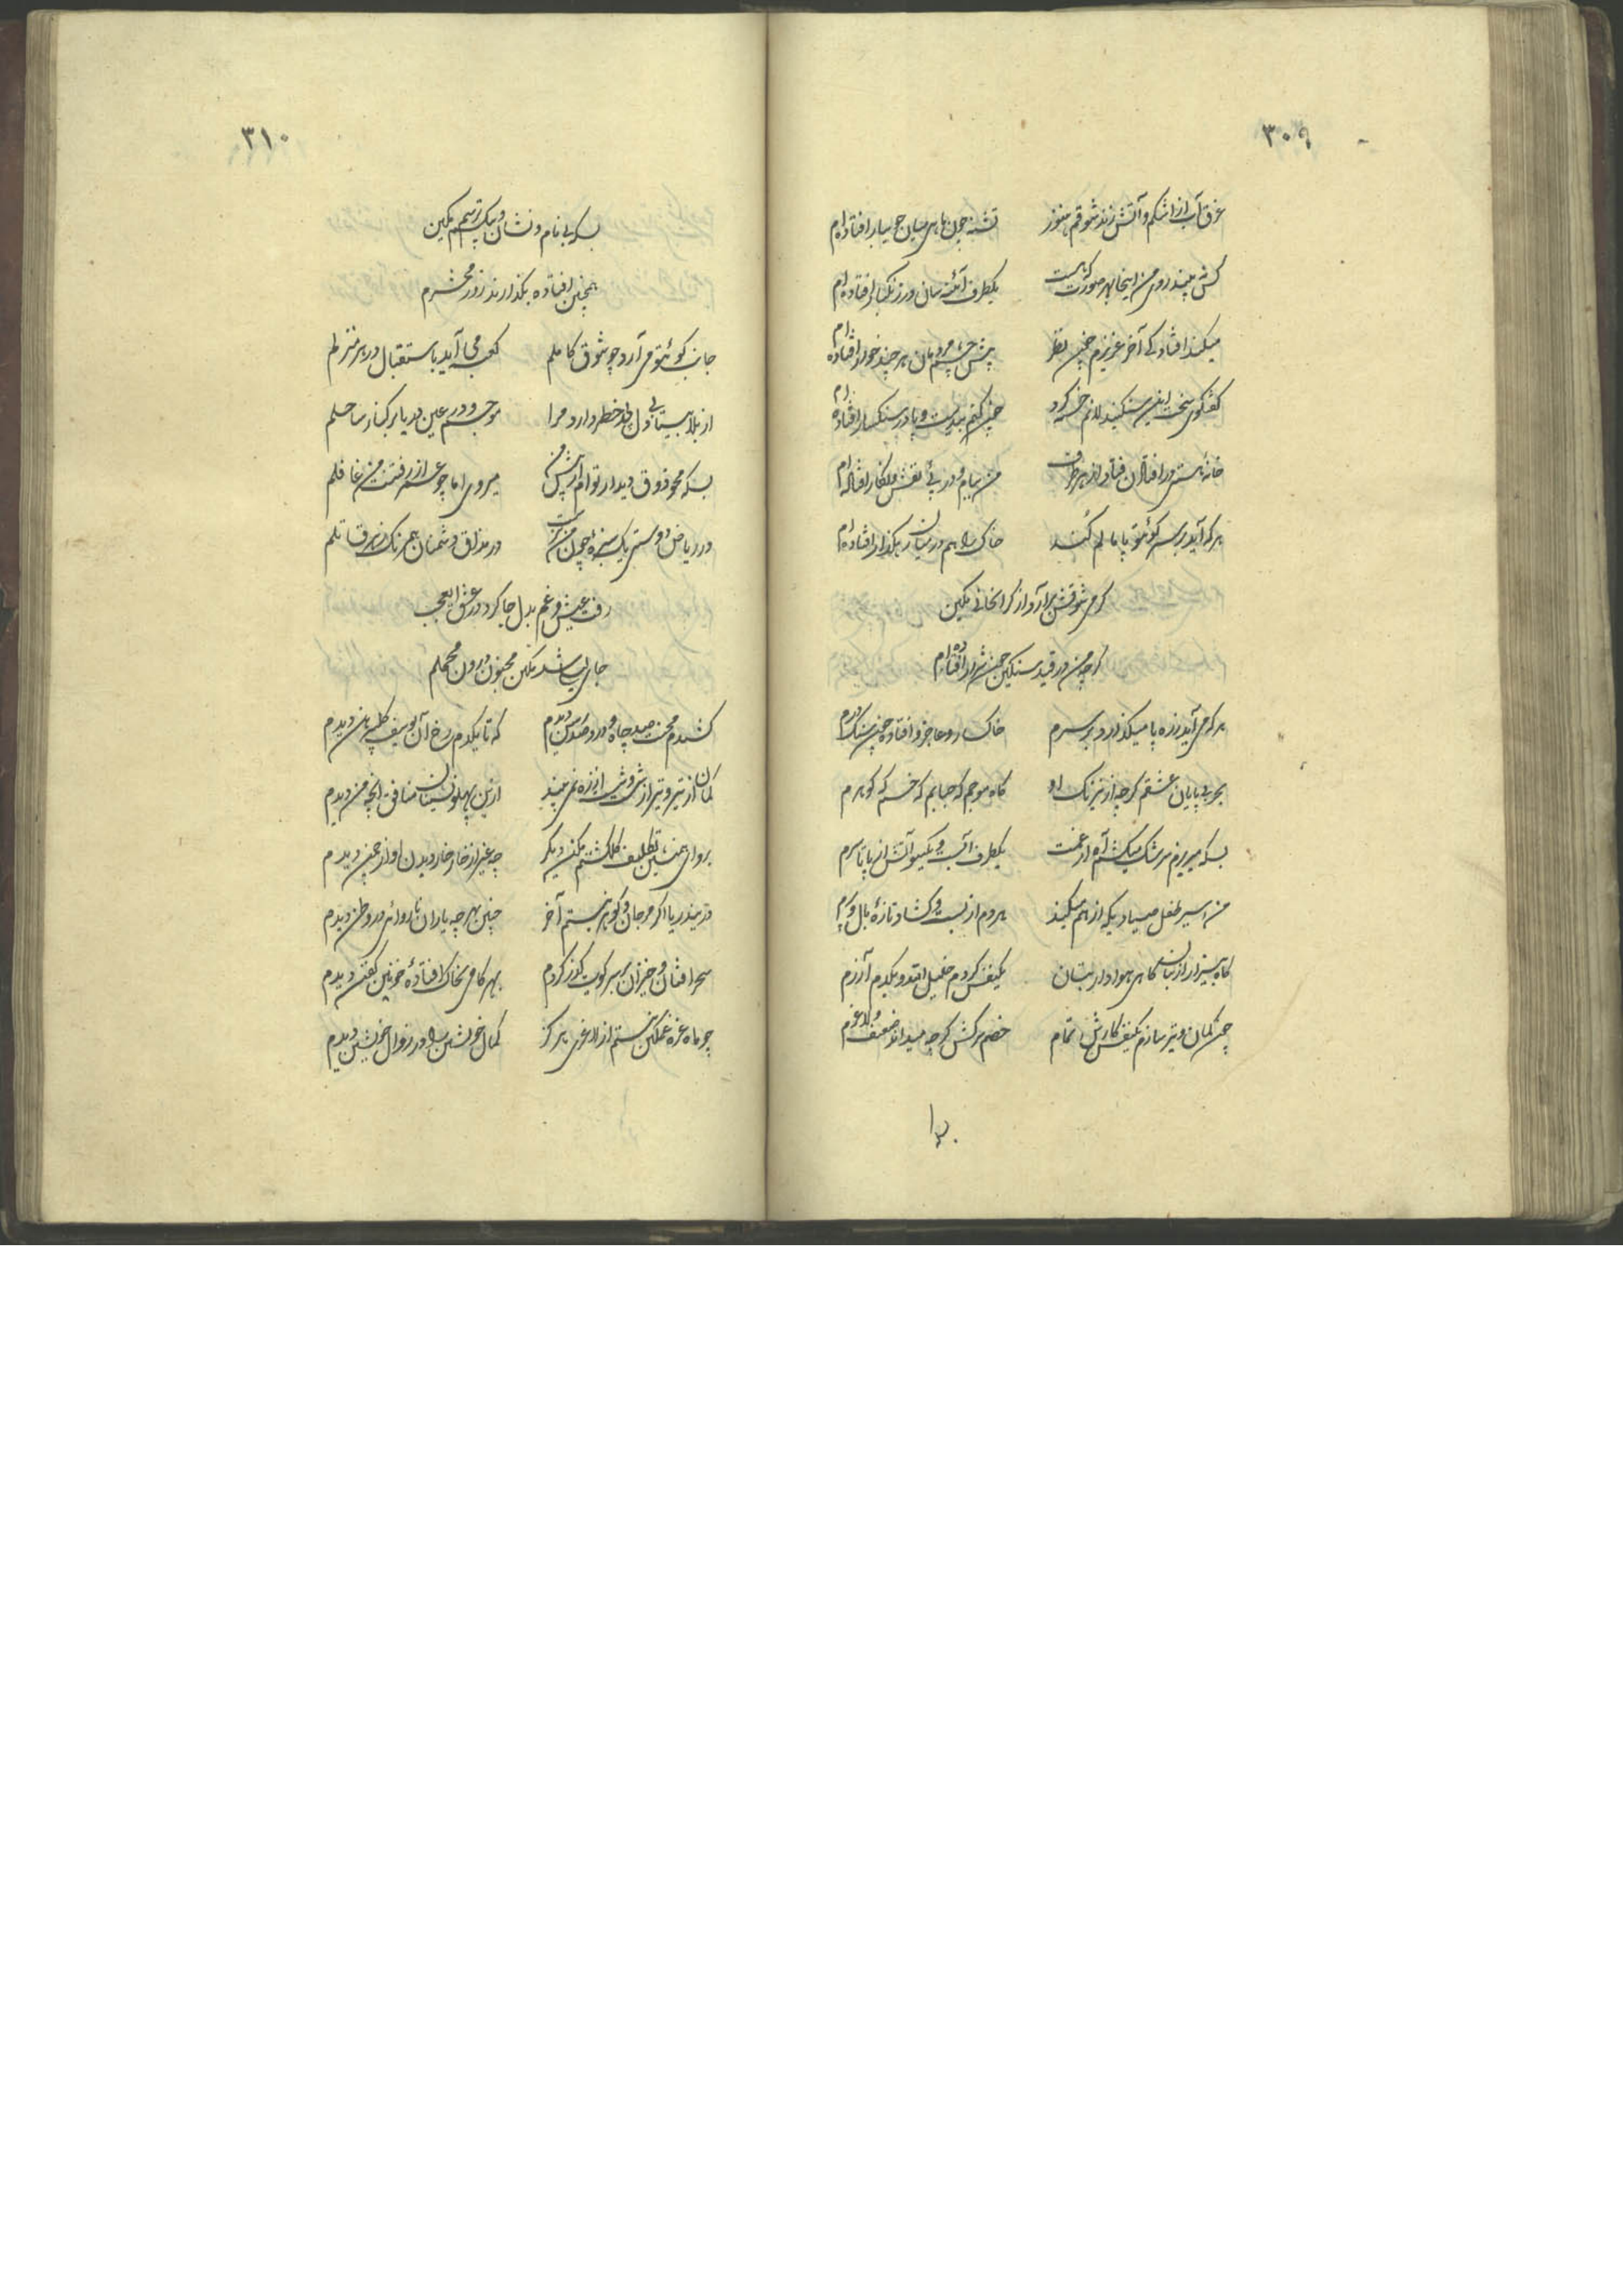 ۳۰۹
غرق آب از اشکم و آتش زند شوقم هنوز تشنه چون ماهی میان جویبار افتاده‌ام
کس نبیند روی من اینجا بهر صورت که هست یکطرف آئینه سان در زنگبار افتاده‌ام
میکند افتادگی آخر عزیزم چون نظر پیش چشم مردمان هر چند خوار افتاده‌ام
گفتگوی سخت سنگ دلانم خسته کرد چون کنم بیدست و پا در سنگسار افتاده‌ام
خانهٔ هستی در افتادن فتاد از هر طرف من ببام و در پئ نقش و نگار افتاده‌ام
هر که آید بر سر کوی تو پامالم کند خاک راهم در میان رهگذار افتاده‌ام
گرمی شوقش برآرد از گرانجانی مکین
گرچه من در قید سنگین چون شرار افتاده‌ام
هر که می آید ز ره پا میگذارد بر سرم خاکسار و عاجز و افتاده چون سنگ درم
بحر بی پایان عشقم گرچه از نیرنگ او گاه موجم گه حبابم گه خسم گه گوهرم
بسکه میریزم سرشک و میکشم آه از غمت یکطرف آبست و یکسو آتش از پا تا سرم
من اسیر طفل صیادیکه از هم میکند هر دم از بست و گشاد تازهٔ بال و پرم
گاه بیزار از بتان گاهی هوادار بتان یکنفس گردم خلیل الله و یکدم آزرم
چون کمان و تیر سازم یکنفس کارش تمام خصم سرکش گرچه میداند ضعیف و لاغرم
۳۱۰
بسکه بی نام و نشان و بیکسم ترسم مکین
همچنین افتاده بگذارند روز محشرم
جانب کوی تو می آرد چو شوق کاملم کعبه می آید باستقبال در هر منزلم
از بلا بیتابی دل خطر دارد مرا موجم و در عین دریا بر کنار ساحلم
بسکه محو ذوق دیدار توام از پیش من میروی اما چو عمر از رفتنت من غافلم
در ریاض دوستی یک سبزه چون من برنخاست در مذاق دشمنان همرنگ زهر قاتلم
رفت عیش و غم بدل جا کرد در عشق ای عجب
جای لیلی شد مکین مجنون درون محملم
کشیدم محنت صد چاه و درد صد رسن دیدم که تا یکدم رخ آن یوسف گل پیرهن دیدم
کمان از تیر و تیر از شست از ره نمی بیند ازین پهلو نشینان منافق آنچه من دیدم
برو ای همنشین تکلیف گلگشتم مکن دیگر چه غیر از خار خار دیدن او از چمن دیدم
در دریا اگر مرجان و گوهر نیستم آخر چنین بهر چه یاران ناروائی در وطن دیدم
سحر افتان و خیزان بر سر کویت گذر کردم بهر گامی بخاک افتادهٔ خونین کفن دیدم
چو ماه غره غمگین نیستم از لاغری هرگز کمال خویشتن را در زوال خویشتن دیدم